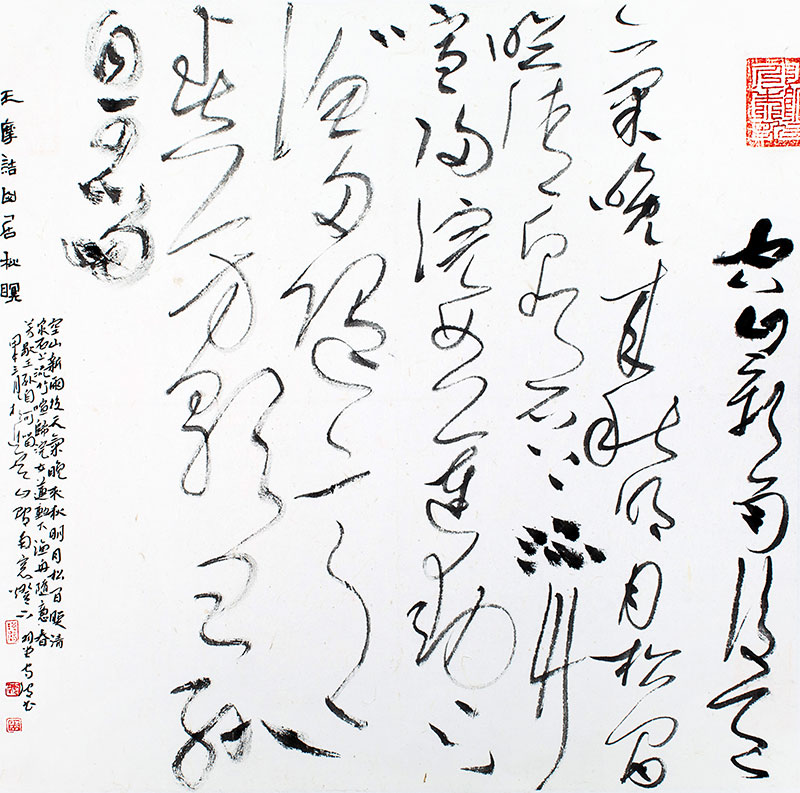 空山新雨後天
氣晚来秋明月松間
照清泉石上流竹
喧歸浣女蓮動下
漁舟隨意
春芳歇王孫
自可留
王摩詰山居秋暝
空山新雨後天氣晚来秋明月松間照清
泉石上流竹喧歸浣女蓮動下漁舟隨意春
芳歇王孫自可留
甲午三月於山南窓燈下